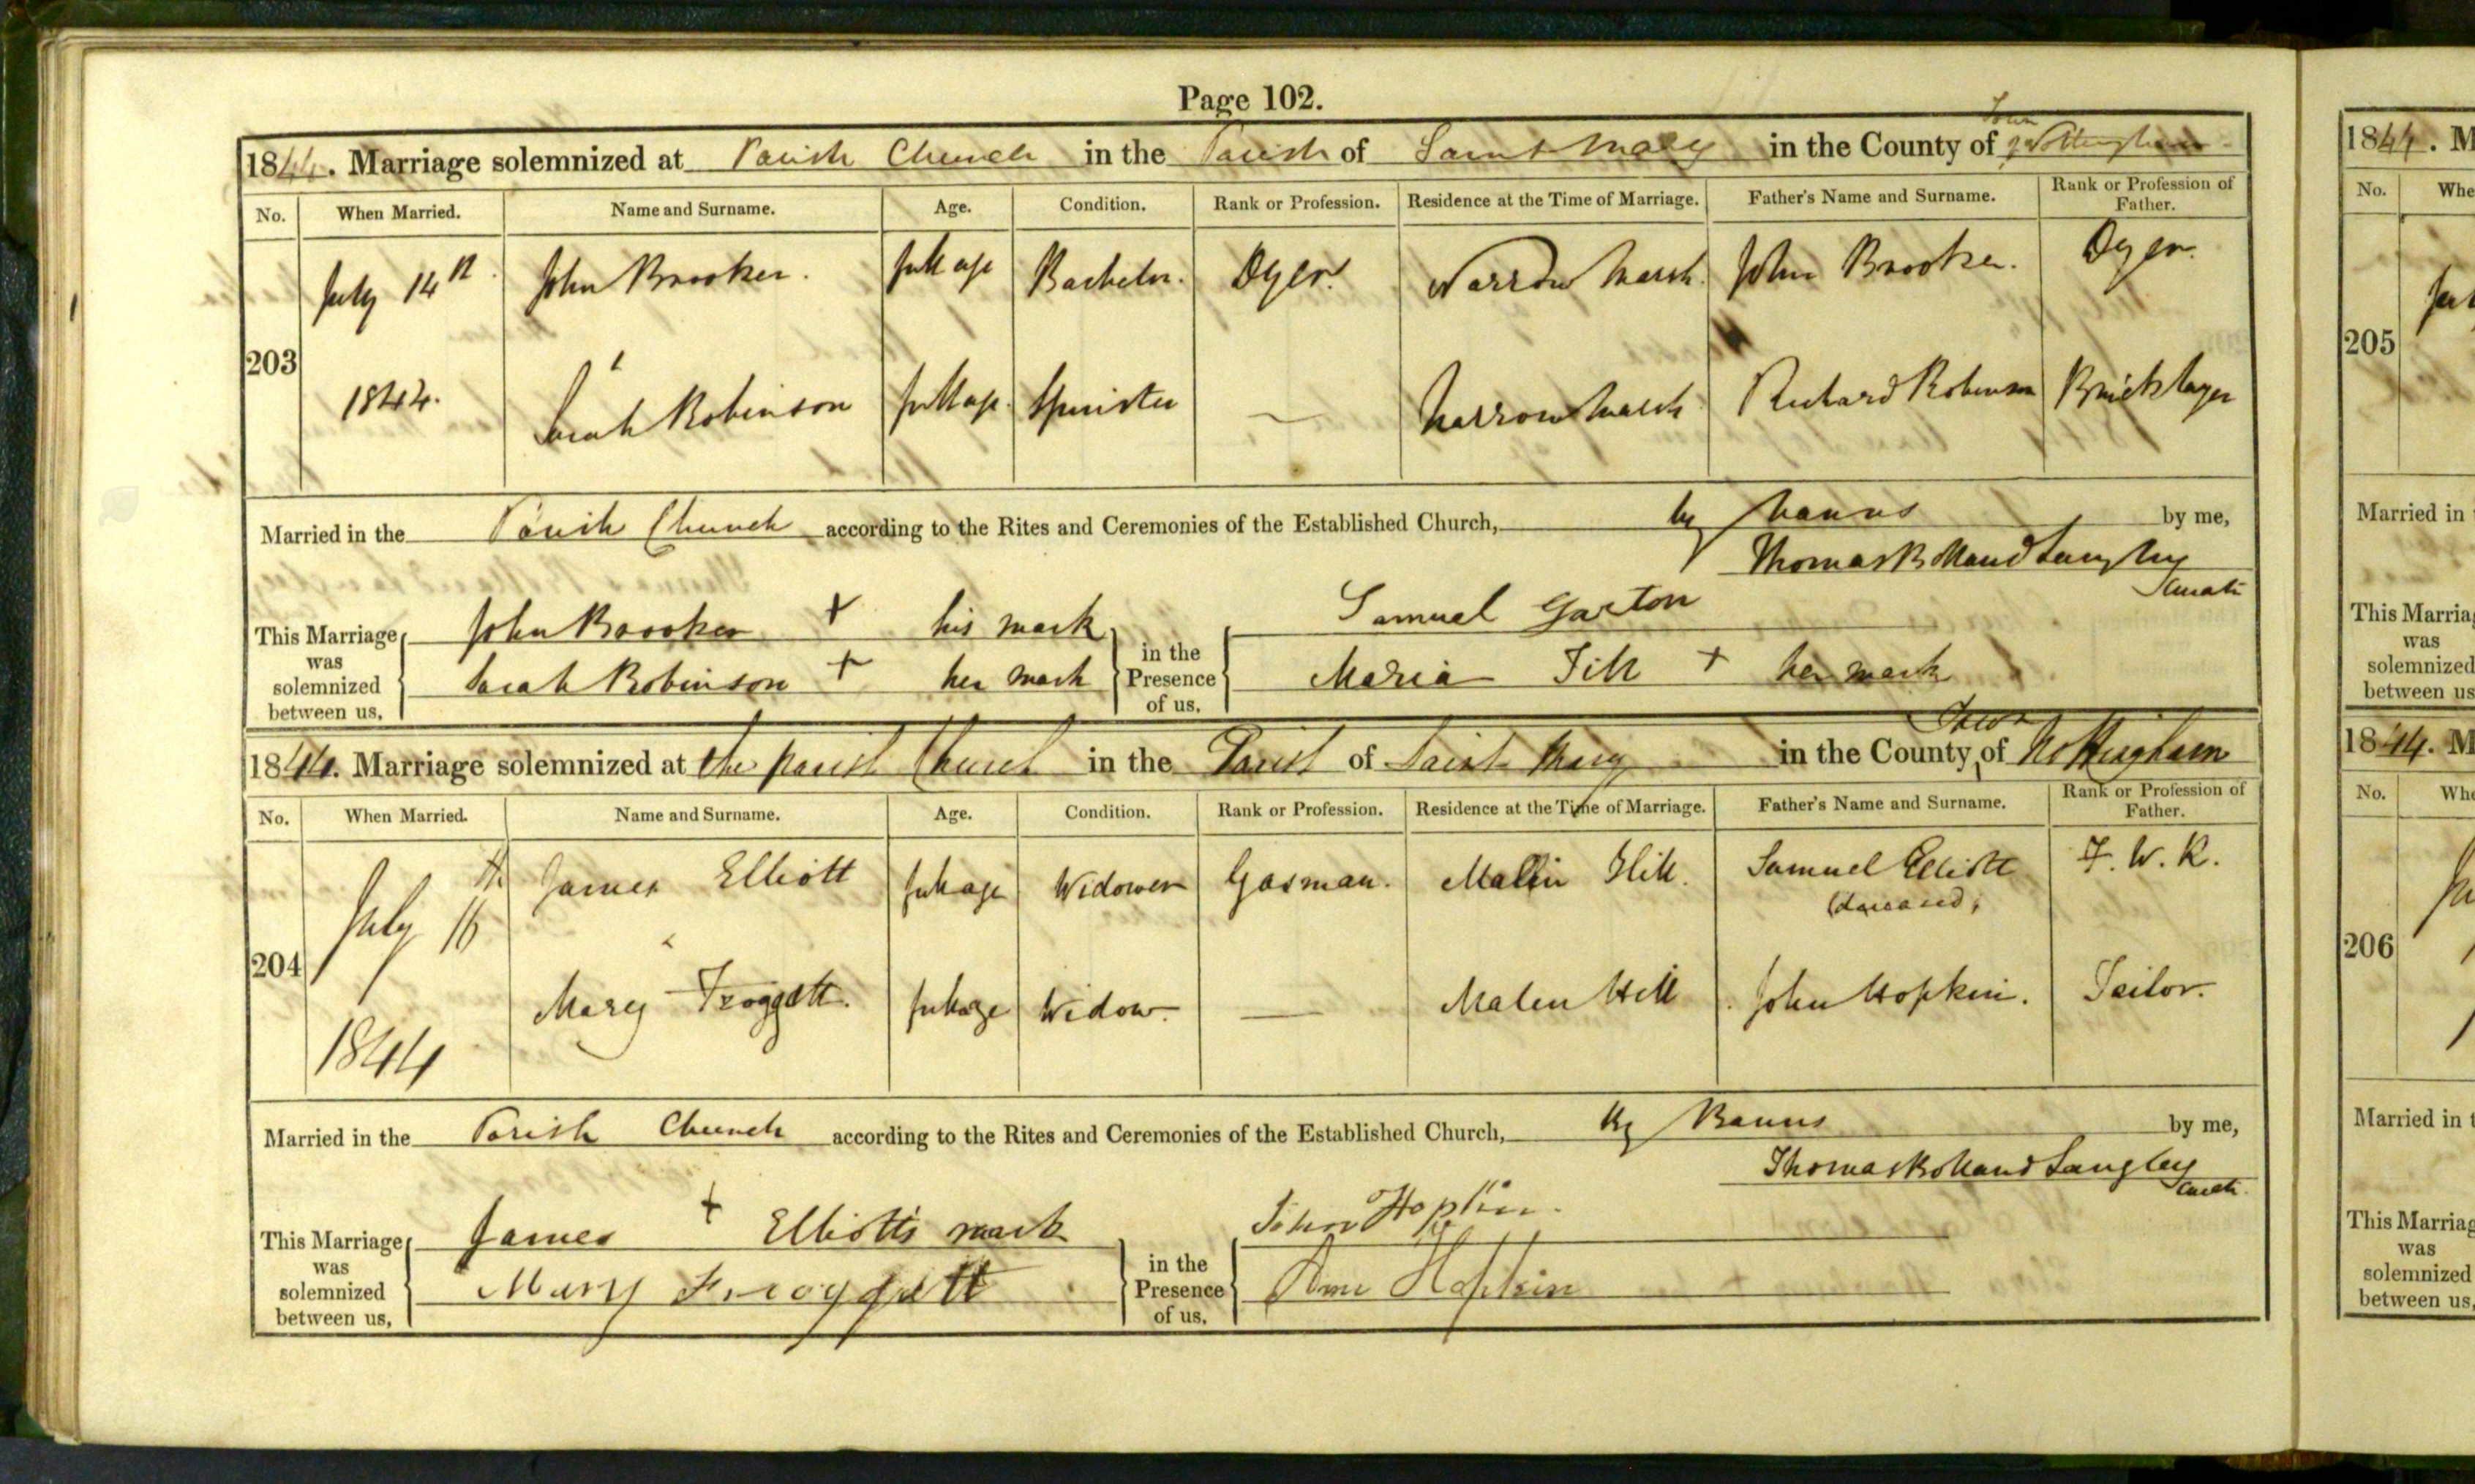 Page 102.
1844. Marriage solemnized at Parish Church in the Parish of Saint Mary in the County of Town of Nottingham
No. When Married. Name and Surname. Age. Condition. Rank or Profession. Residence at the Time of Marriage. Father's Name and Surname. Rank or Profession of Father.
203 July 14th John Brooker. full age Bachelor. Dyer. Narrow Marsh. John Brooker. Dyer.
1844. Sarah Robinson full age. Spinster — Narrow Marsh Richard Robinson Bricklayer
Married in the Parish Church according to the Rites and Ceremonies of the Established Church, by Banns by me,
Thomas Bolland Langley
Curate
This Marriage was solemnized between us, John Brooker + his mark in the Presence of us, Samuel Garton
Sarah Robinson + her mark Maria Till + her mark
1844. Marriage solemnized at the parish Church in the Parish of Saint Mary in the County Town of Nottingham
No. When Married. Name and Surname. Age. Condition. Rank or Profession. Residence at the Time of Marriage. Father's Name and Surname. Rank or Profession of Father.
204 July 16th James Elliott full age Widower Gasman. Malin Hill. Samuel Elliott (deceased) F. W. K.
1844 Mary Froggatt. full age Widow. — Malen Hill John Hopkin. Tailor.
Married in the Parish Church according to the Rites and Ceremonies of the Established Church, By Banns by me,
Thomas Bolland Langley
Curate
This Marriage was solemnized between us, James + Elliott's mark in the Presence of us, John Hopkin.
Mary Froggatt Ann Hopkin
1844. M
No. Whe
205
Married in
This Marriag
was
solemnized
between us
1844. M
No. Whe
206
Married in t
This Marriag
was
solemnized
between us,